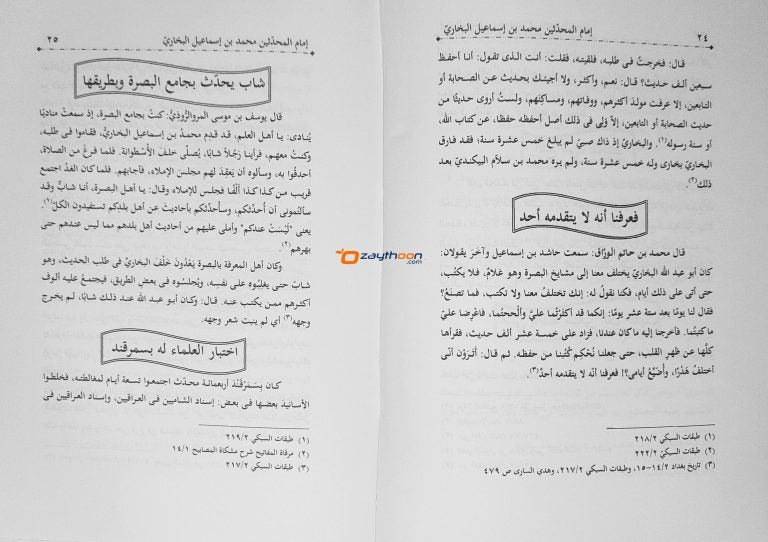 ٢٤ إمام المحدّثين محمد بن إسماعيل البخاريّ
قال: فخرجتُ فى طلبه، فلقيته، فقلت: أنت الذى تقول: أنا أحفظ
سبعين ألف حديث؟ قال: نعم، وأكثر، ولا أجيئك بحديث عن الصحابة أو
التابعين، إلا عرفت مولدَ أكثرهم، ووفاتهم، ومساكنهم، ولستُ أروى حديثًا من
حديث الصحابة أو التابعين، إلاّ ولى فى ذلك أصل أحفظه حفظًا، عن كتاب الله،
أو سنة رسوله(١). والبخاريّ إذ ذاك صبيّ لم يبلغ خمس عشرة سنة؛ فقد فارق
البخاريّ بخارى وله خمس عشرة سنة، ولم يره محمد بن سلاّم البيكنديّ بعد
ذلك(٢).
فعرفنا أنه لا يتقدمه أحد
قال محمد بن حاتم الورّاق: سمعت حاشد بن إسماعيل وآخَرَ يقولان:
كان أبو عبد الله البخاريّ يختلف معنا إلى مشايخ البصرة وهو غلامٌ، فلا يكتُب،
حتى أتى على ذلك أيام، فكنا نقولُ له: إنك تختلفُ معنا ولا تكتب، فما تصنَعُ؟
فقال لنا يومًا بعد ستة عشر يومًا: إنكما قد أكثرْتُما عليّ وألْححتُما، فاعْرِضا عليّ
ما كتبتُما. فأخرجنا إليه ما كان عندنا، فزاد على خمسة عشر ألف حديث، فقرأها
كلّها عن ظهرِ القلب، حتى جعلنا نُحْكِم كُتُبنا من حفظه. ثم قال: أتَرَوْن أنّى
أختلفُ هَدْرًا، وأُضَيِّعُ أيامى؟! فعرفنا أنّه لا يتقدمه أحدٌ(٣).
(١) طبقات السبكي ٢١٨/٢
(٢) طبقات السبكيّ ٢٢٢/٢
(٣) تاريخ بغداد ١٤/٢-١٥، وطبقات السبكي ٢١٧/٢، وهدي السارى ص ٤٧٩
إمام المحدّثين محمد بن إسماعيل البخاريّ ٢٥
شاب يحدّث بجامع البصرة وبطريقها
قال يوسف بن موسى المروالرُّوذيُّ: كنتُ بجامع البصرة، إذ سمعتُ مناديًا
يُنادى: يا أهل العلم، قد قدِم محمدُ بن إسماعيل البخاريُّ، فقاموا فى طلبه،
وكنتُ معهم، فرأينا رجُلاً شابًا، يُصلّى خلفَ الأسْطُوانة. فلما فرغَ من الصلاة،
أحدقُوا به، وسألوه أن يَعقِدَ لهم مجلسَ الإملاء، فأجابهم. فلما كان الغدُ اجتمع
قريب من كذا كذا ألْفًا فجلس للإملاء وقال: يا أهل البصرة، أنا شابٌّ وقد
سألتُمونى أن أُحدّثكم، وسأُحدّثكم بأحاديثَ عن أهل بلدكم تستفيدون الكلّ(١).
يعنى "لَيْسَتْ عندكم" وأملى عليهم من أحاديث أهل بلدهم مما ليس عندهم حتى
بهرهم(٢).
وكان أهل المعرفة بالبصرة يَعْدُونَ خَلْفَ البخاريّ فى طلب الحديث، وهو
شابٌّ حتى يغلِبُوه على نفسِه، ويُجلسُوه فى بعض الطريق، فيجتمعُ عليه ألوف
أكثرهم ممن يكتب عنه. قال: وكان أبو عبد الله عند ذلك شابًّا، لم يخرج
وجهه(٣) أي لم ينبت شعر وجهه.
اختبار العلماء له بسمرقند
كان بِسَمَرْقَنْدَ أربعمائة محدّث اجتمعوا تسعة أيام لمغالطته، فخلطوا
الأسانيدَ بعضَها فى بعض: إسناد الشاميين فى العراقيين، وإسناد العراقيين فى
(١) طبقات السبكي ٢١٩/٢
(٢) مرقاة المفاتيح شرح مشكاة المصابيح ١٤/١
(٣) طبقات السبكي ٢١٧/٢
Ozaythoon.com